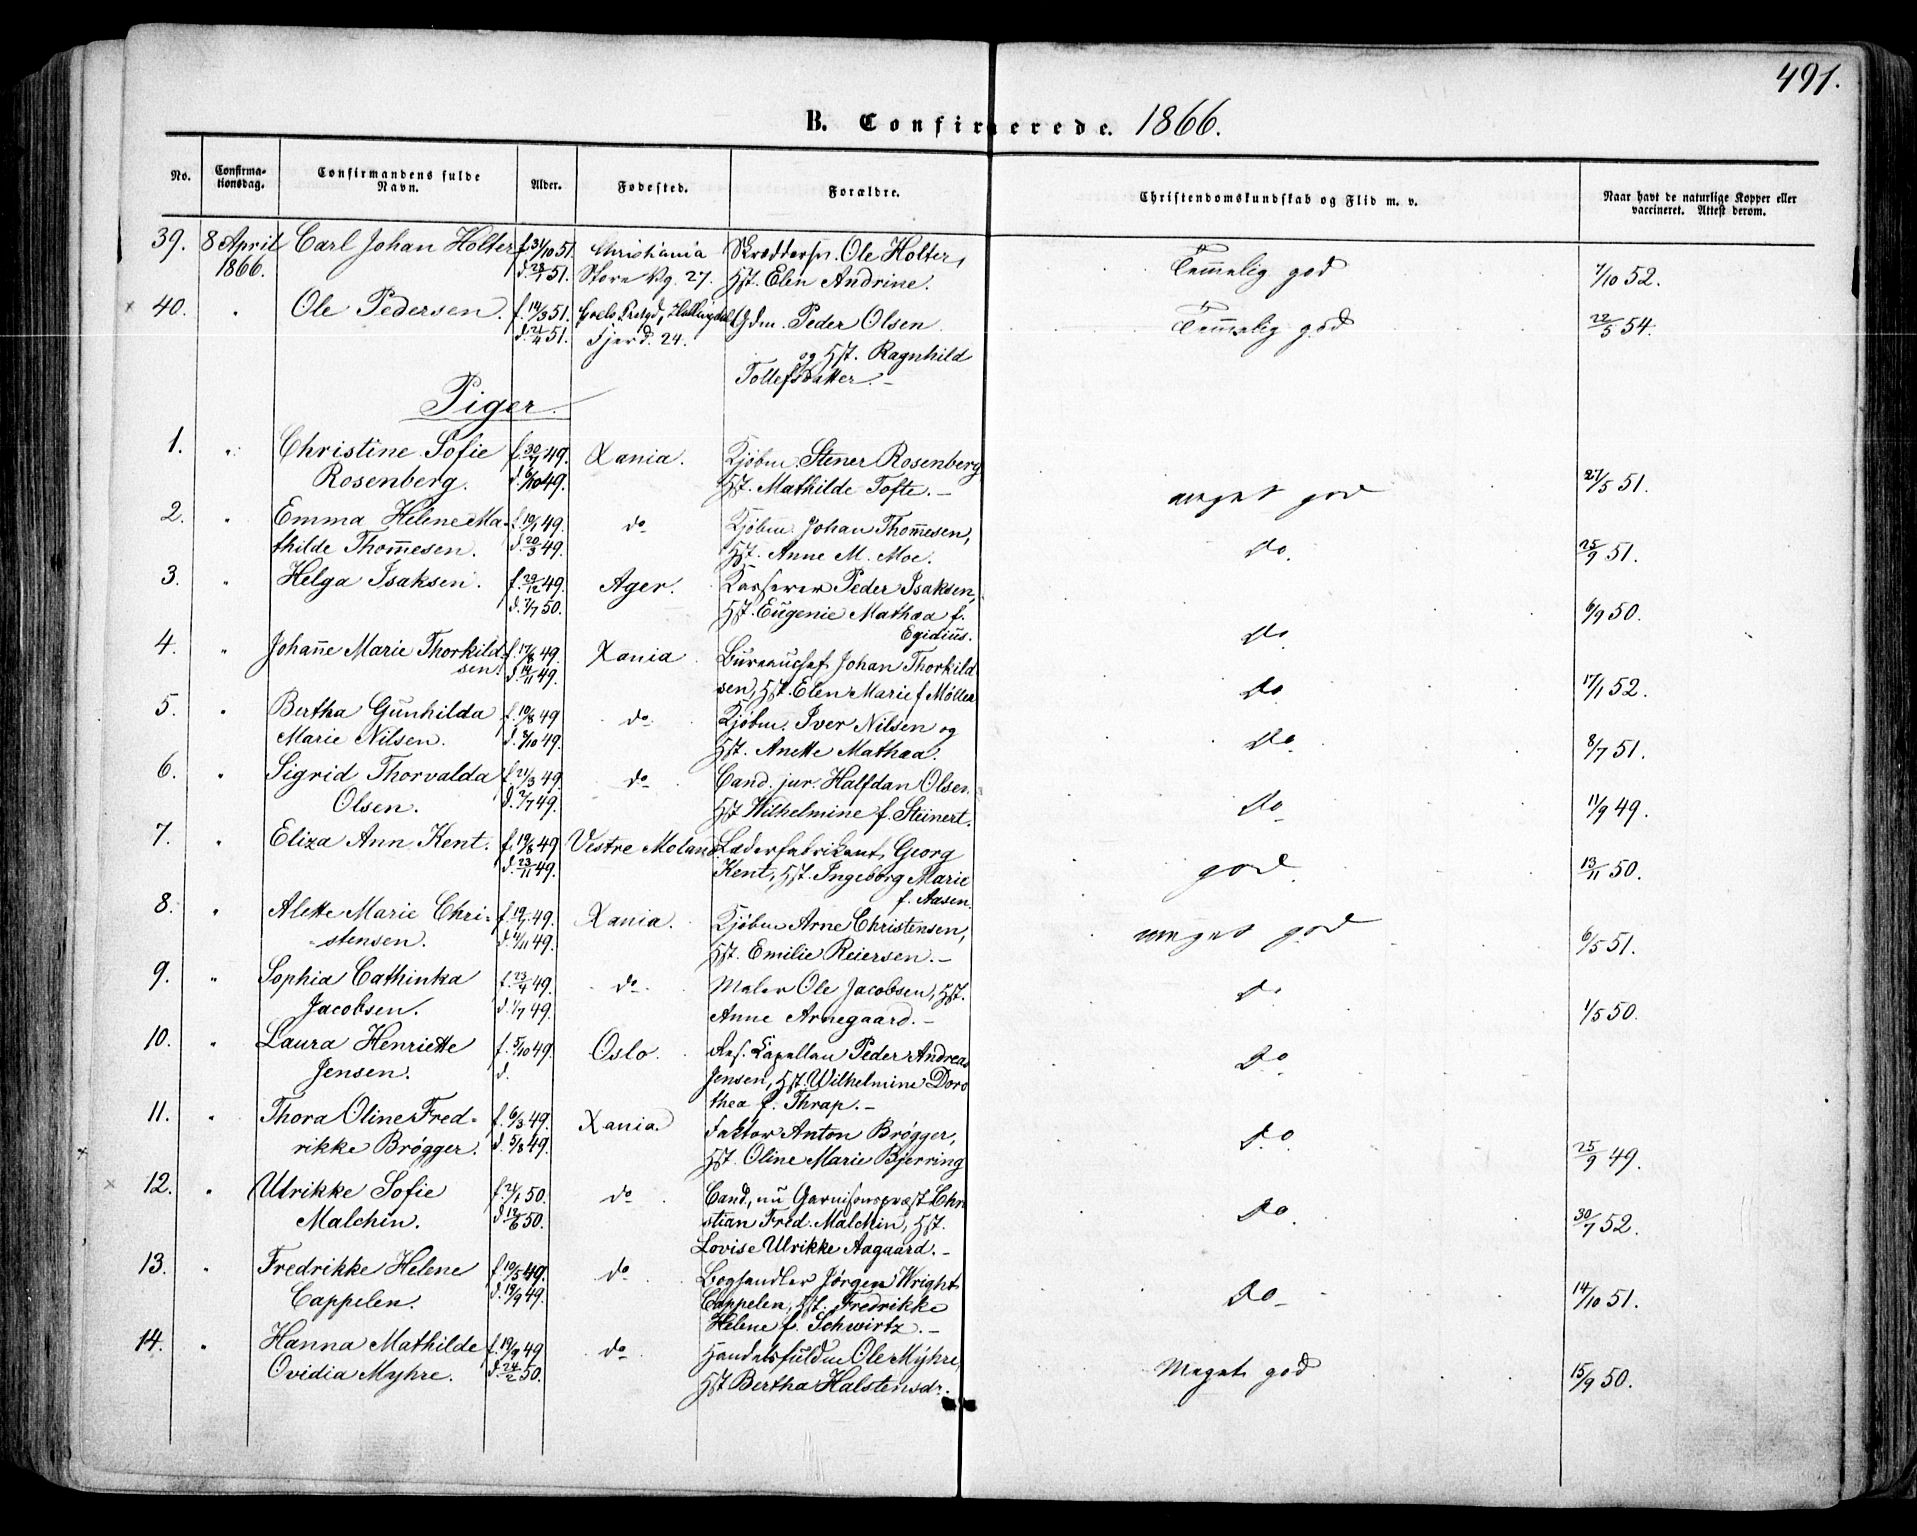 491.
B. Confirmerede. 1866.
No. Confirmationsdag. Confirmandens fulde Navn. Alder. Fødested. Forældre. Christendomskundskab og Flid m. v. Naar havt de naturlige Kopper eller vaccineret. Attest derom.
39. 8 April Carl Johan Holter f. 31/10 51. Christiania Skræddersv. Ole Holter, Temmelig god 7/10 52.
1866. Store Vg. 27. Hst. Elen Andrine.
40. " Ole Pedersen. f. 14/3 51. Hallingdal Gdm. Peder Olsen Temmelig god 22/5 54.
d. 21/4 51. Fjerd. 24. og Hst. Ragnhild
Tollefsdatter. -
Piger.
1. " Christine Sofie f. 30/7 49. Xania. Kjøbm. Stener Rosenberg
Rosenberg. d. 6/10 49. Hst. Mathilde Tofte. - meget god 27/5 51.
2. " Emma Helene Ma- f. 19/1 49. do Kjøbm. Johan Thom̅esen,
thilde Thom̅esen. d. 20/3 49. Hst. Anne M. Moe. do. 25/9 51.
3. " Helga Isaksen. f. 29/12 49. Ager. Kasserer Peder Isaksen,
d. 7/7 50. Hst. Eugenie Mathea f. 6/9 50.
Egidius. do.
4. " Johan̅e Marie Thorkild- f. 17/8 49. Xania. Bureauchef Johan Thorkild
sen. d. 14/11 49. sen, Hst. Elen Marie f Møller do 17/1 52.
5. " Bertha Gunhilda f. 10/8 49 do Kjøbm. Iver Nilsen og
Marie Nilsen. d. 7/10 49. Hst. Anette Mathea. do. 8/7 51.
6. " Sigrid Thorvalda f. 21/3 49. do Cand. jur. Halfdan Olsen
Olsen. d. 2/7 49. Hst Wilhelmine f. Steinert. do 11/9 49.
7. " Eliza Ann Kent. f. 19/8 49 Vestre Moland. Læderfabrikant, Georg
d. 23/11 49. Kent, Hst. Ingeborg Marie god. 13/11 50.
f. Aasen.
8. " Alette Marie Chri- f. 19/7 49. Xania. Kjøbm Arne Christensen, meget god
stensen. d. 1/11 49. Hst. Emilie Reiersen. - 6/5 51.
9. " Sophia Cathinka f. 23/4 49. do Maler Ole Jacobsen, Hst. do
Jacobsen. d. 1/7 49. Anne Arnegaard. - 1/5 50.
10. " Laura Henriette f. 5/10 49. Oslo. Res. Capellan Peder Andreas do
Jensen. d. Jensen, Hst. Wilhelmine Doro
thea f. Thrap. -
11. " Thora Oline Fred- f. 6/3 49. Xania. Faktor Anton Brøgger, do.
rikke Brøgger. d. 5/8 49. Hst. Oline Marie Bjerring 25/9 49.
12. " Ulrikke Sofie f. 2/1 50. do Cand., nu Garnisonspræst Chri
Malchin. d. 12/6 50. stian Fred. Malchin, Hst. do. 30/7 52.
Lovise Ulrikke Aagaard. -
13. " Fredrikke Helene f. 10/5 49. do Boghandler Jørgen Wright
Cappelen. d. 19/9 49. Cappelen, Hst. Fredrikke do 14/10 51.
Helene f. Schwirtz. -
14. " Hanna Mathilde f. 19/9 49 do Handelsfuldm Ole Myhre,
Ovidia Myhre. d. 24/2 50. Hst Bertha Halstensdr. Meget god 15/9 50.